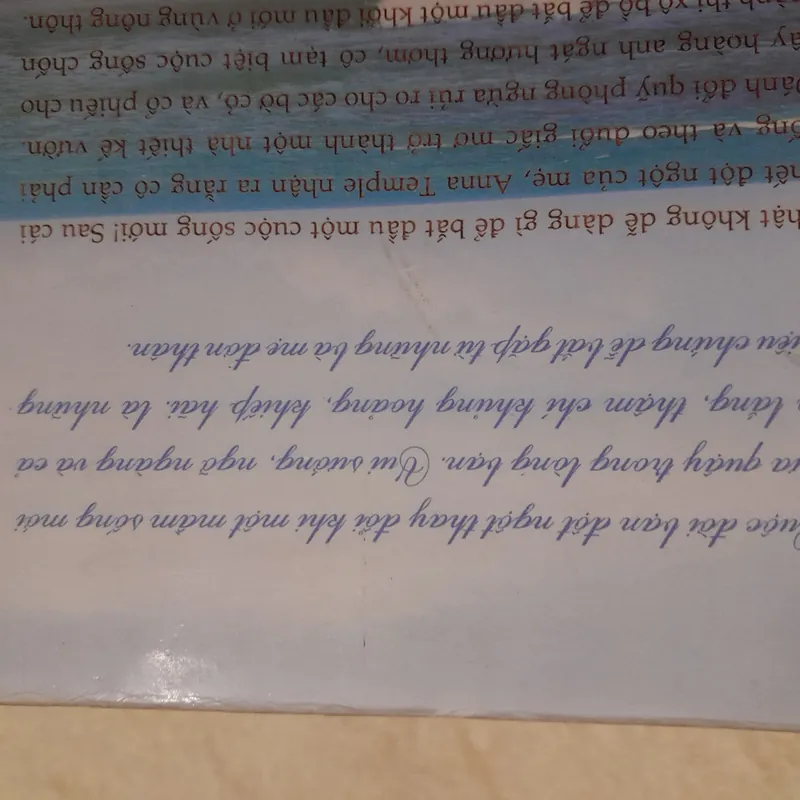 uộc đời bạn đột ngột thay đổi khi một mầm sống mới
ựa quậy trong lòng bạn. Vui sướng, ngỡ ngàng và cả
lắng, thậm chí khủng hoảng, khiếp hãi, là những
iệu chứng dễ bắt gặp từ những bà mẹ đơn thân.
hật không dễ dàng gì để bắt đầu một cuộc sống mới! Sau cái
hết đột ngột của mẹ, Anna Temple nhận ra rằng cô cần phải
ống và theo đuổi giấc mơ trở thành một nhà thiết kế vườn.
ánh đổi quỹ phòng ngừa rủi ro cho các bờ cỏ, và cổ phiếu cho
ây hoàng anh ngát hương thơm, cô tạm biệt cuộc sống chốn
ành thị xô bồ để bắt đầu một khởi đầu mới ở vùng nông thôn.